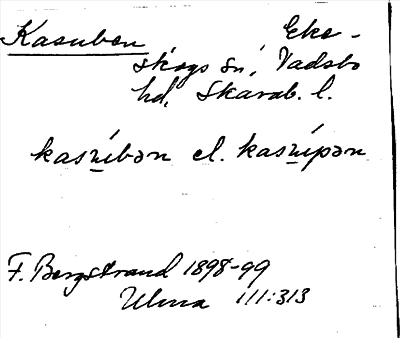 Kasuben Eke-
skogs sn, Vadsbo
hd, Skarab. l.
kasúbən el. kasúipən
F. Bergstrand 1898-99
Ulma 111:313